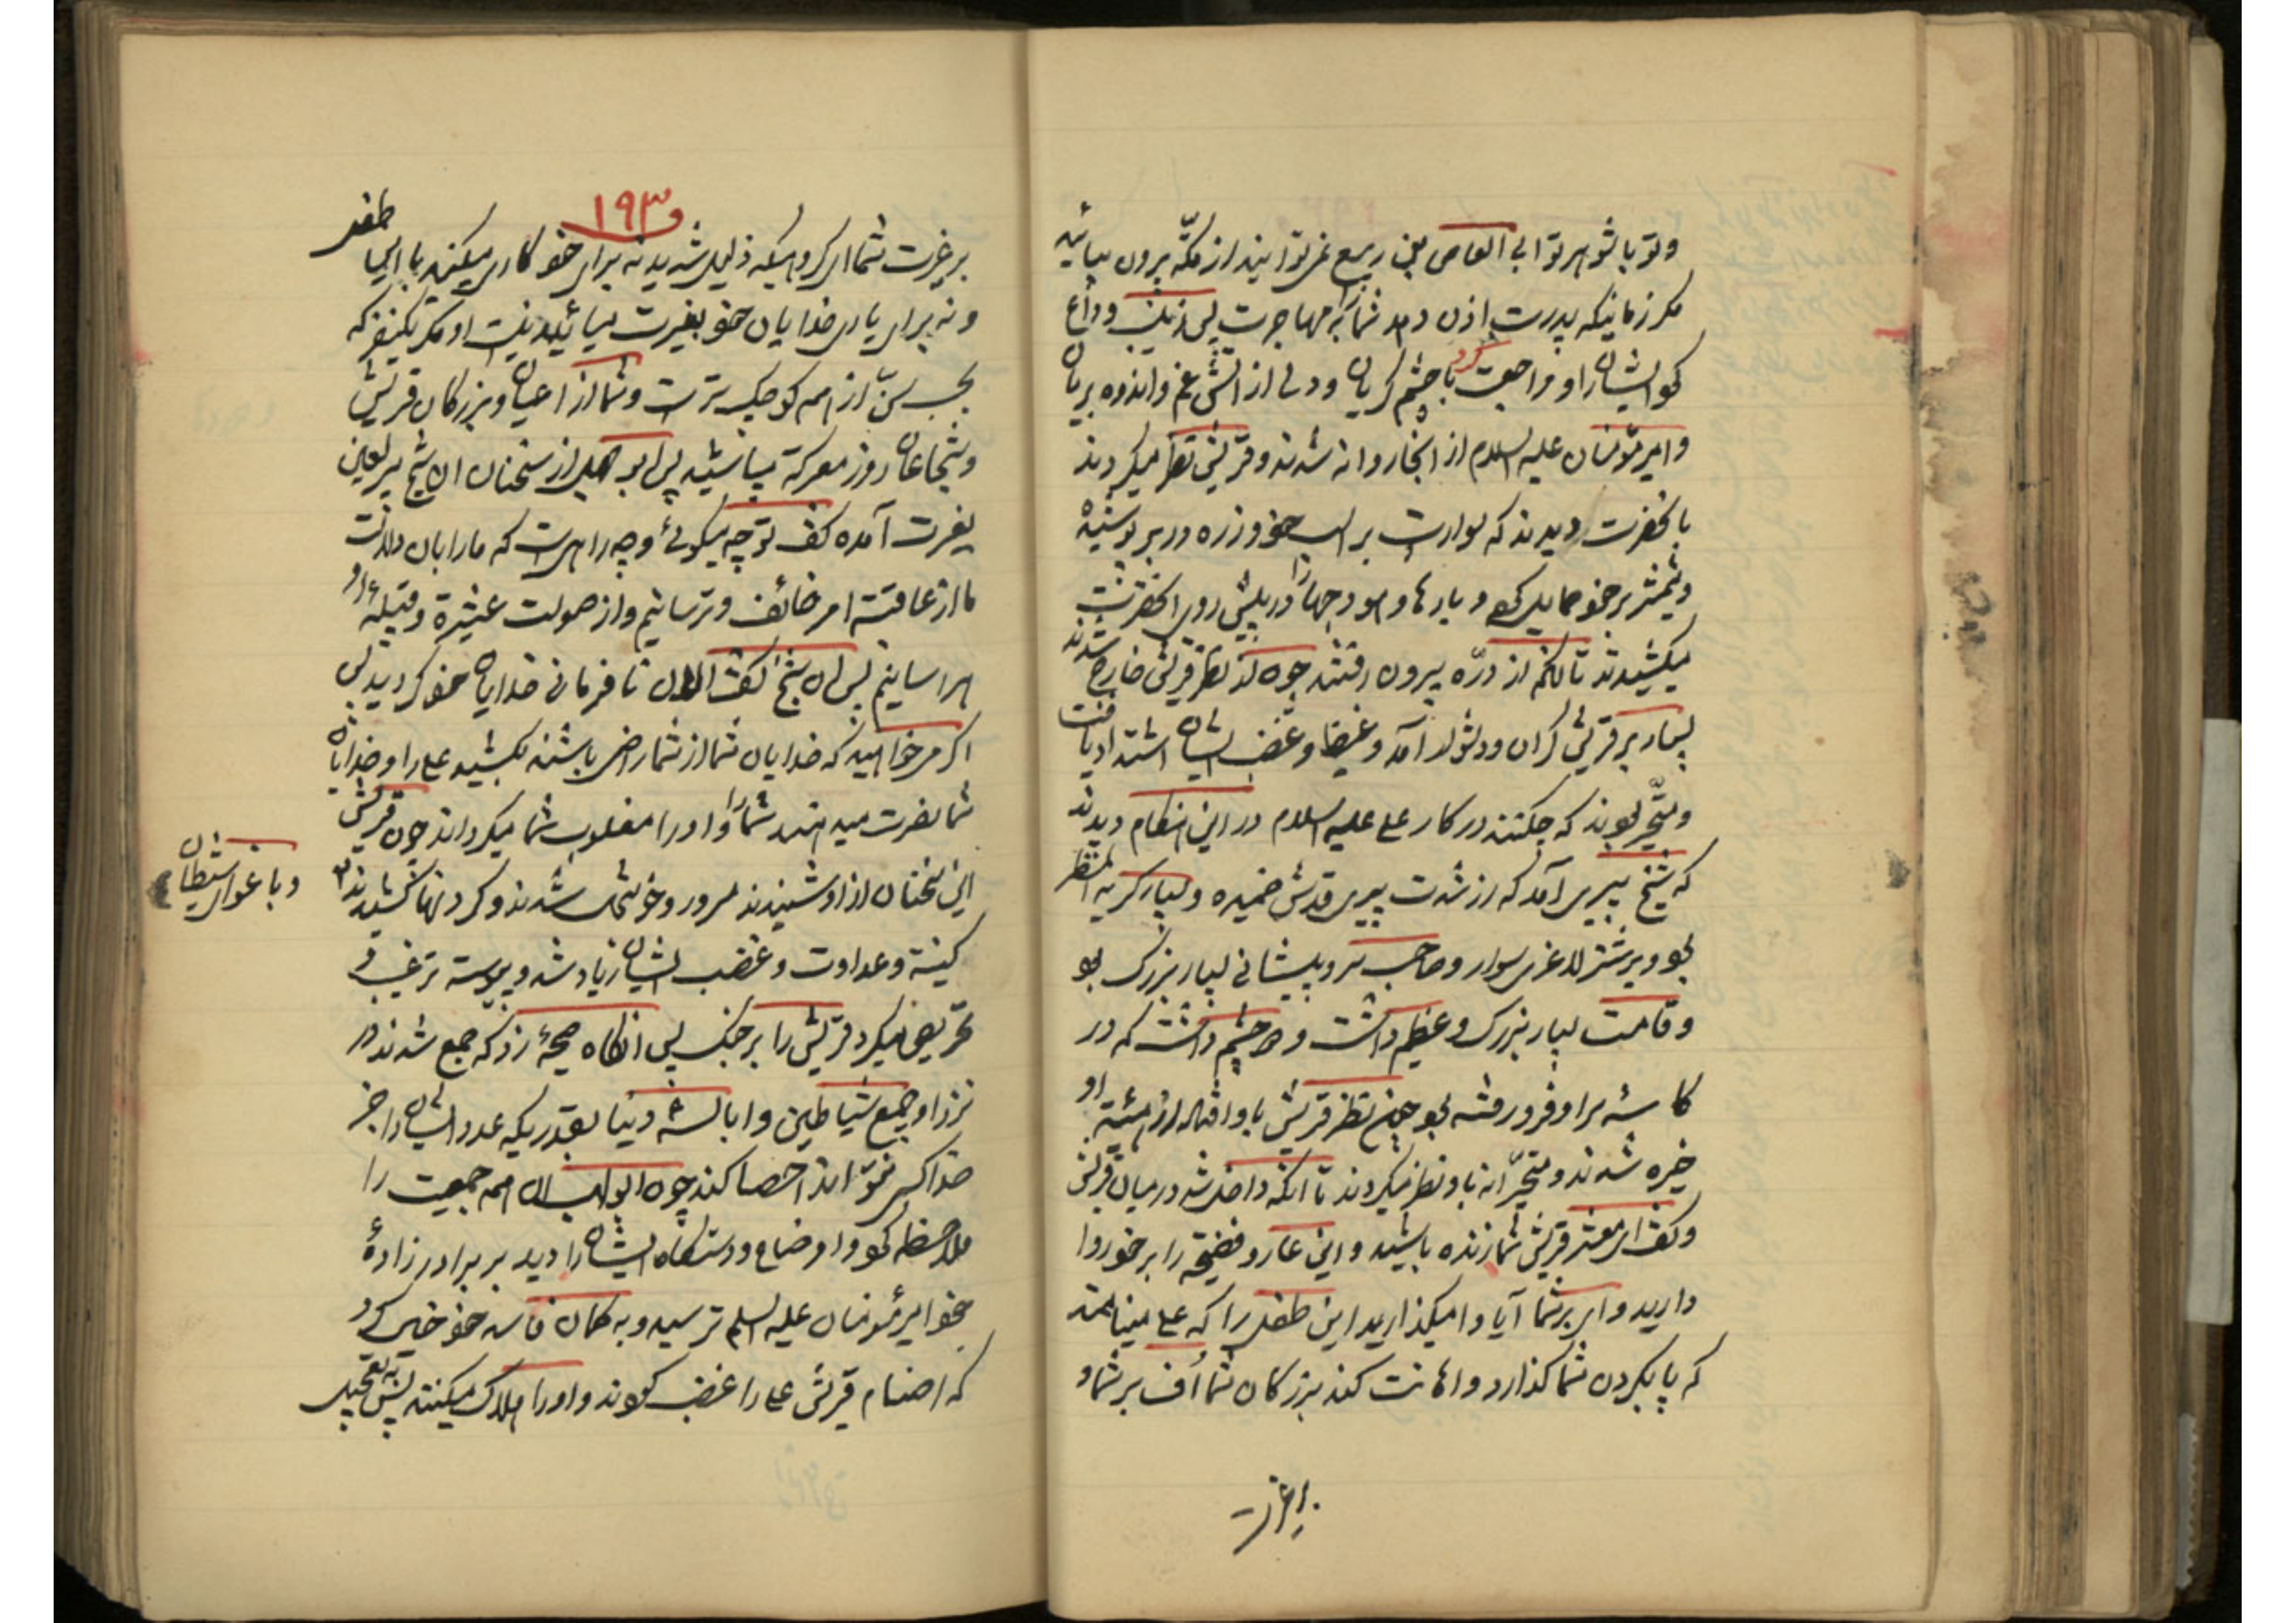 و تو با شوهر تو ابی العاص بن ربیع نمی‌توانید از مکّه بیرون بیائید
مگر زمانیکه پدرت اذن دهد شما را بمهاجرت پس زینب وداع
کرد ایشان را و مراجعت کرد با چشم گریان و دلی از آتش غم و اندوه بریان
و امیر مؤمنان علیه السلام از انجا روانه شدند و قریش نظر میکردند
بانحضرت دیدند که سوار است بر اسب خود و زره در بر پوشیده
و شمشیر بر خود حمایل کرده و بارها و هودجها را در پیش روی انحضرت
میکشیدند تا انکه از درّه بیرون رفتند چون از نظر قریش خارج شدند
بسیار بر قریش گران و دشوار آمد و غیظ و غضب ایشان اشتداد یافت
و متحیّر بودند که چکنند در کار علی علیه السلام در این هنگام دیدند
که شیخ پیری آمد که از شدت پیری قدش خمیده و بسیار کریه المنظر
بود و بر شتر لاغری سوار و صاحب سر و پیشانی بسیار بزرگ بود
و قامت بسیار بزرگ و عظیم داشت و دو چشم داشت که در
کاسهٔ سر او فرو رفته بود چون نظر قریش باو افتاد از هیئت او
خیره شدند و متحیّرانه باو نظر میکردند تا انکه داخل شد در میان قریش
و گفت ای معشر قریش شما زنده باشید و این عار و فضیحة را بر خود روا
دارید وای بر شما آیا وامیگذارید این طفل را که علی مینامند
که پا بگردن شما گذارد و اهانت کند بزرگان شما اُف بر شما و
بر غیرت
و۱۹۳
بر غیرت شما ای گروهیکه ذلیل شدید نه برای خود کاری میکنید با این طفل
و نه برای یاری خدایان خود بغیرت میائید نیست او مگر یکنفر که
بحسب سنّ از همه کوچک‌تر است و شما از اعیان و بزرگان قریش
و شجاعان روز معرکه میباشید پس ابو جهل از سخنان ان شیخ پیر لعین
بغیرت آمده گفت تو چه میگوئی و چه راهی است که ما را بان دلالت
ما از عاقبة امر خائف و ترسانیم و از صولت عشیرة و قبیلهٔ او
هراسانیم پس ان شیخ گفت الان نافرمانی خدایان خود کردید پس
اگر میخواهید که خدایان شما از شما راضی باشند بکشید علی را و خدایان
شما نصرت میدهند شما را و او را مغلوب شما میگردانند چون قریش
این سخنان از او شنیدند مسرور و خوشحال شدند و گردنها کشیدند
و باغوای شیطان
کینه و عداوت و غضب ایشان زیاد شد و پیوسته ترغیب و
تحریص میکرد قریش را بر جنگ پس انگاه صیحهٔ زد که جمع شدند در
نزد او جمیع شیاطین و ابالسهٔ دنیا بقدریکه عدد ایشان را جز
خدا کسی نتواند احصا کند چون ابولهب ان همه جمعیت را
ملاحظه کرد و اوضاع و دستگاه ایشان را دید بر برادر زادهٔ
خود امیر مؤمنان علیه السلام ترسید و به گمان فاسد خود خیال کرد
که اصنام قریش علی را غضب کردند و او را هلاک میکنند پس بتعجیل